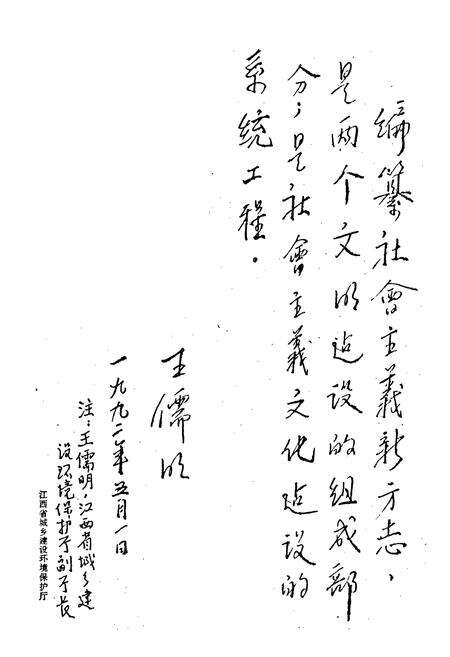 编纂社會主義新方志，
是两个文明边设的组成部
分；是社會主義文化边设的
系统工程。
王儒明
一九九二年五月一日
注：王儒明，江西省城乡建
设环境保护厅副厅长
江西省城乡建设环境保护厅